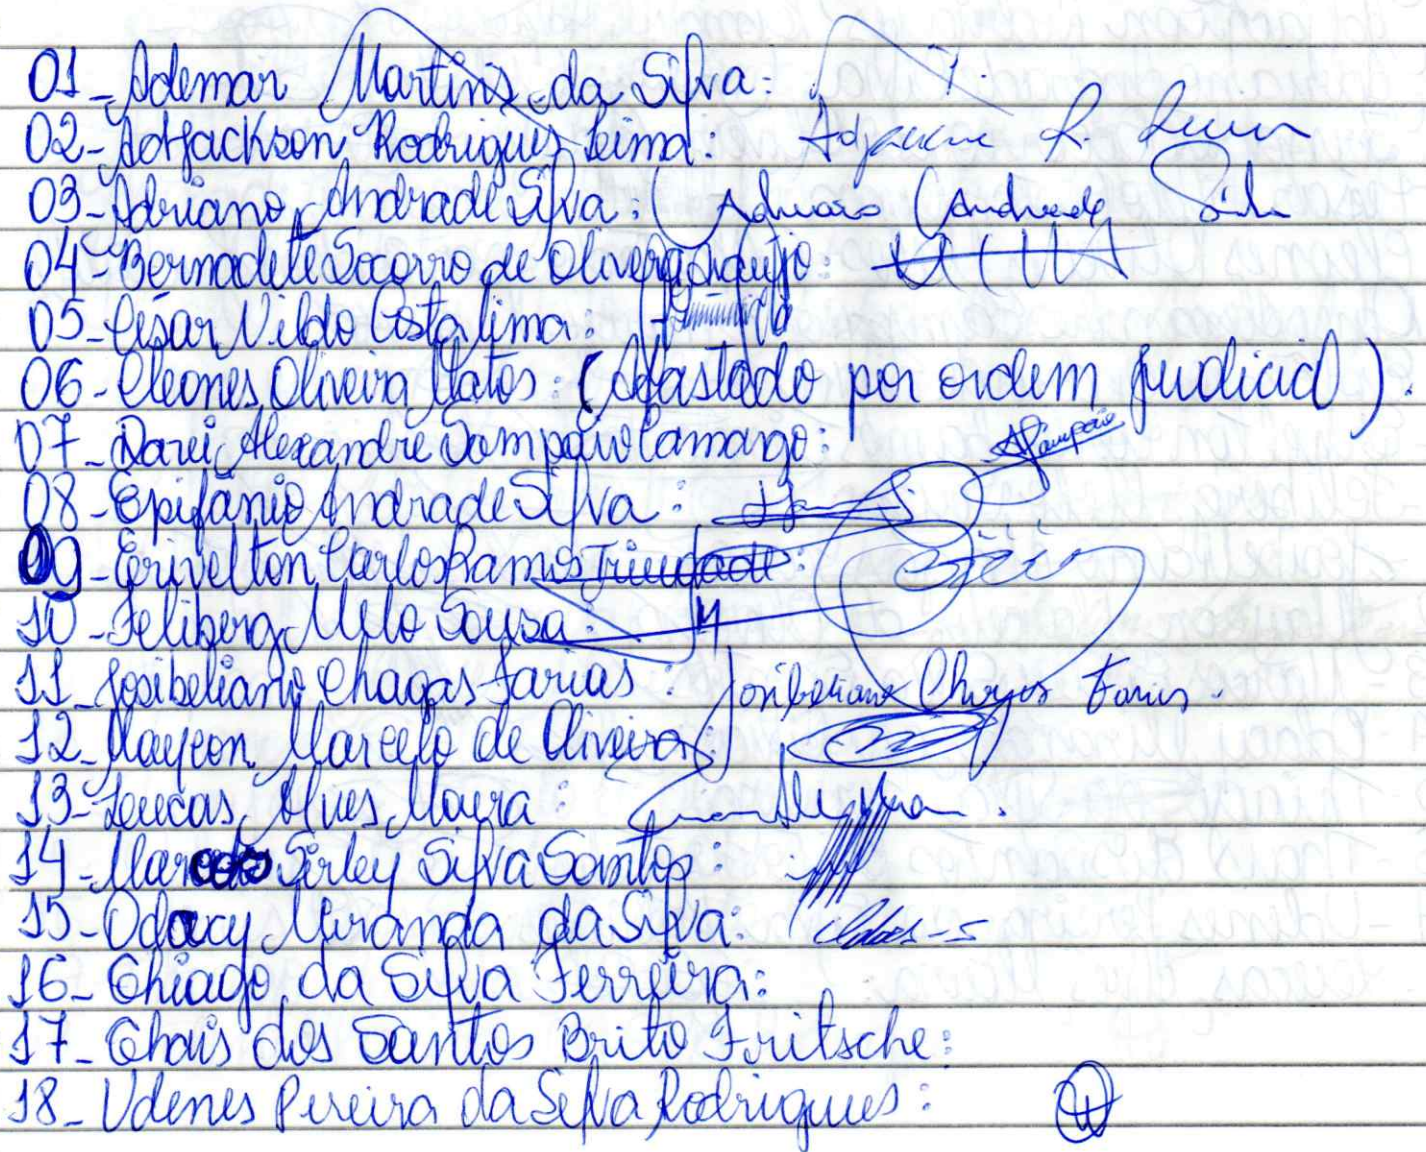 01-Ademar Martins da Silva:
02-Adjackson Rodrigues Leima: R.
03-Adriano Andrade Silva: Adriano Andrade Silva
04-Bernadete Socorro de Oliveira Araujo:
05-César Nildo Costa lima:
06-Cleones Oliveira Matos: (Afastado por ordem judicial).
07-Darei Alexandre Sampaio Camargo: ASampaio
08-Epifânio Andrade Silva:
09-Erivelton Carlos Ramos Trindade:
10-Feliberg Melo Sousa:
11-Josibeliano Chagas Farias: Josibeliano Chagas Farias.
12-Maycon Marcelo de Oliveira:
13-Leucas Alves Moura:
14-Marcos Sirley Silva Santos:
15-Odacy Miranda da Silva:
16-Thiago da Silva Ferreira:
17-Thais dos Santos Brito Fritsche:
18-Udenes Pereira da Silva Rodrigues: